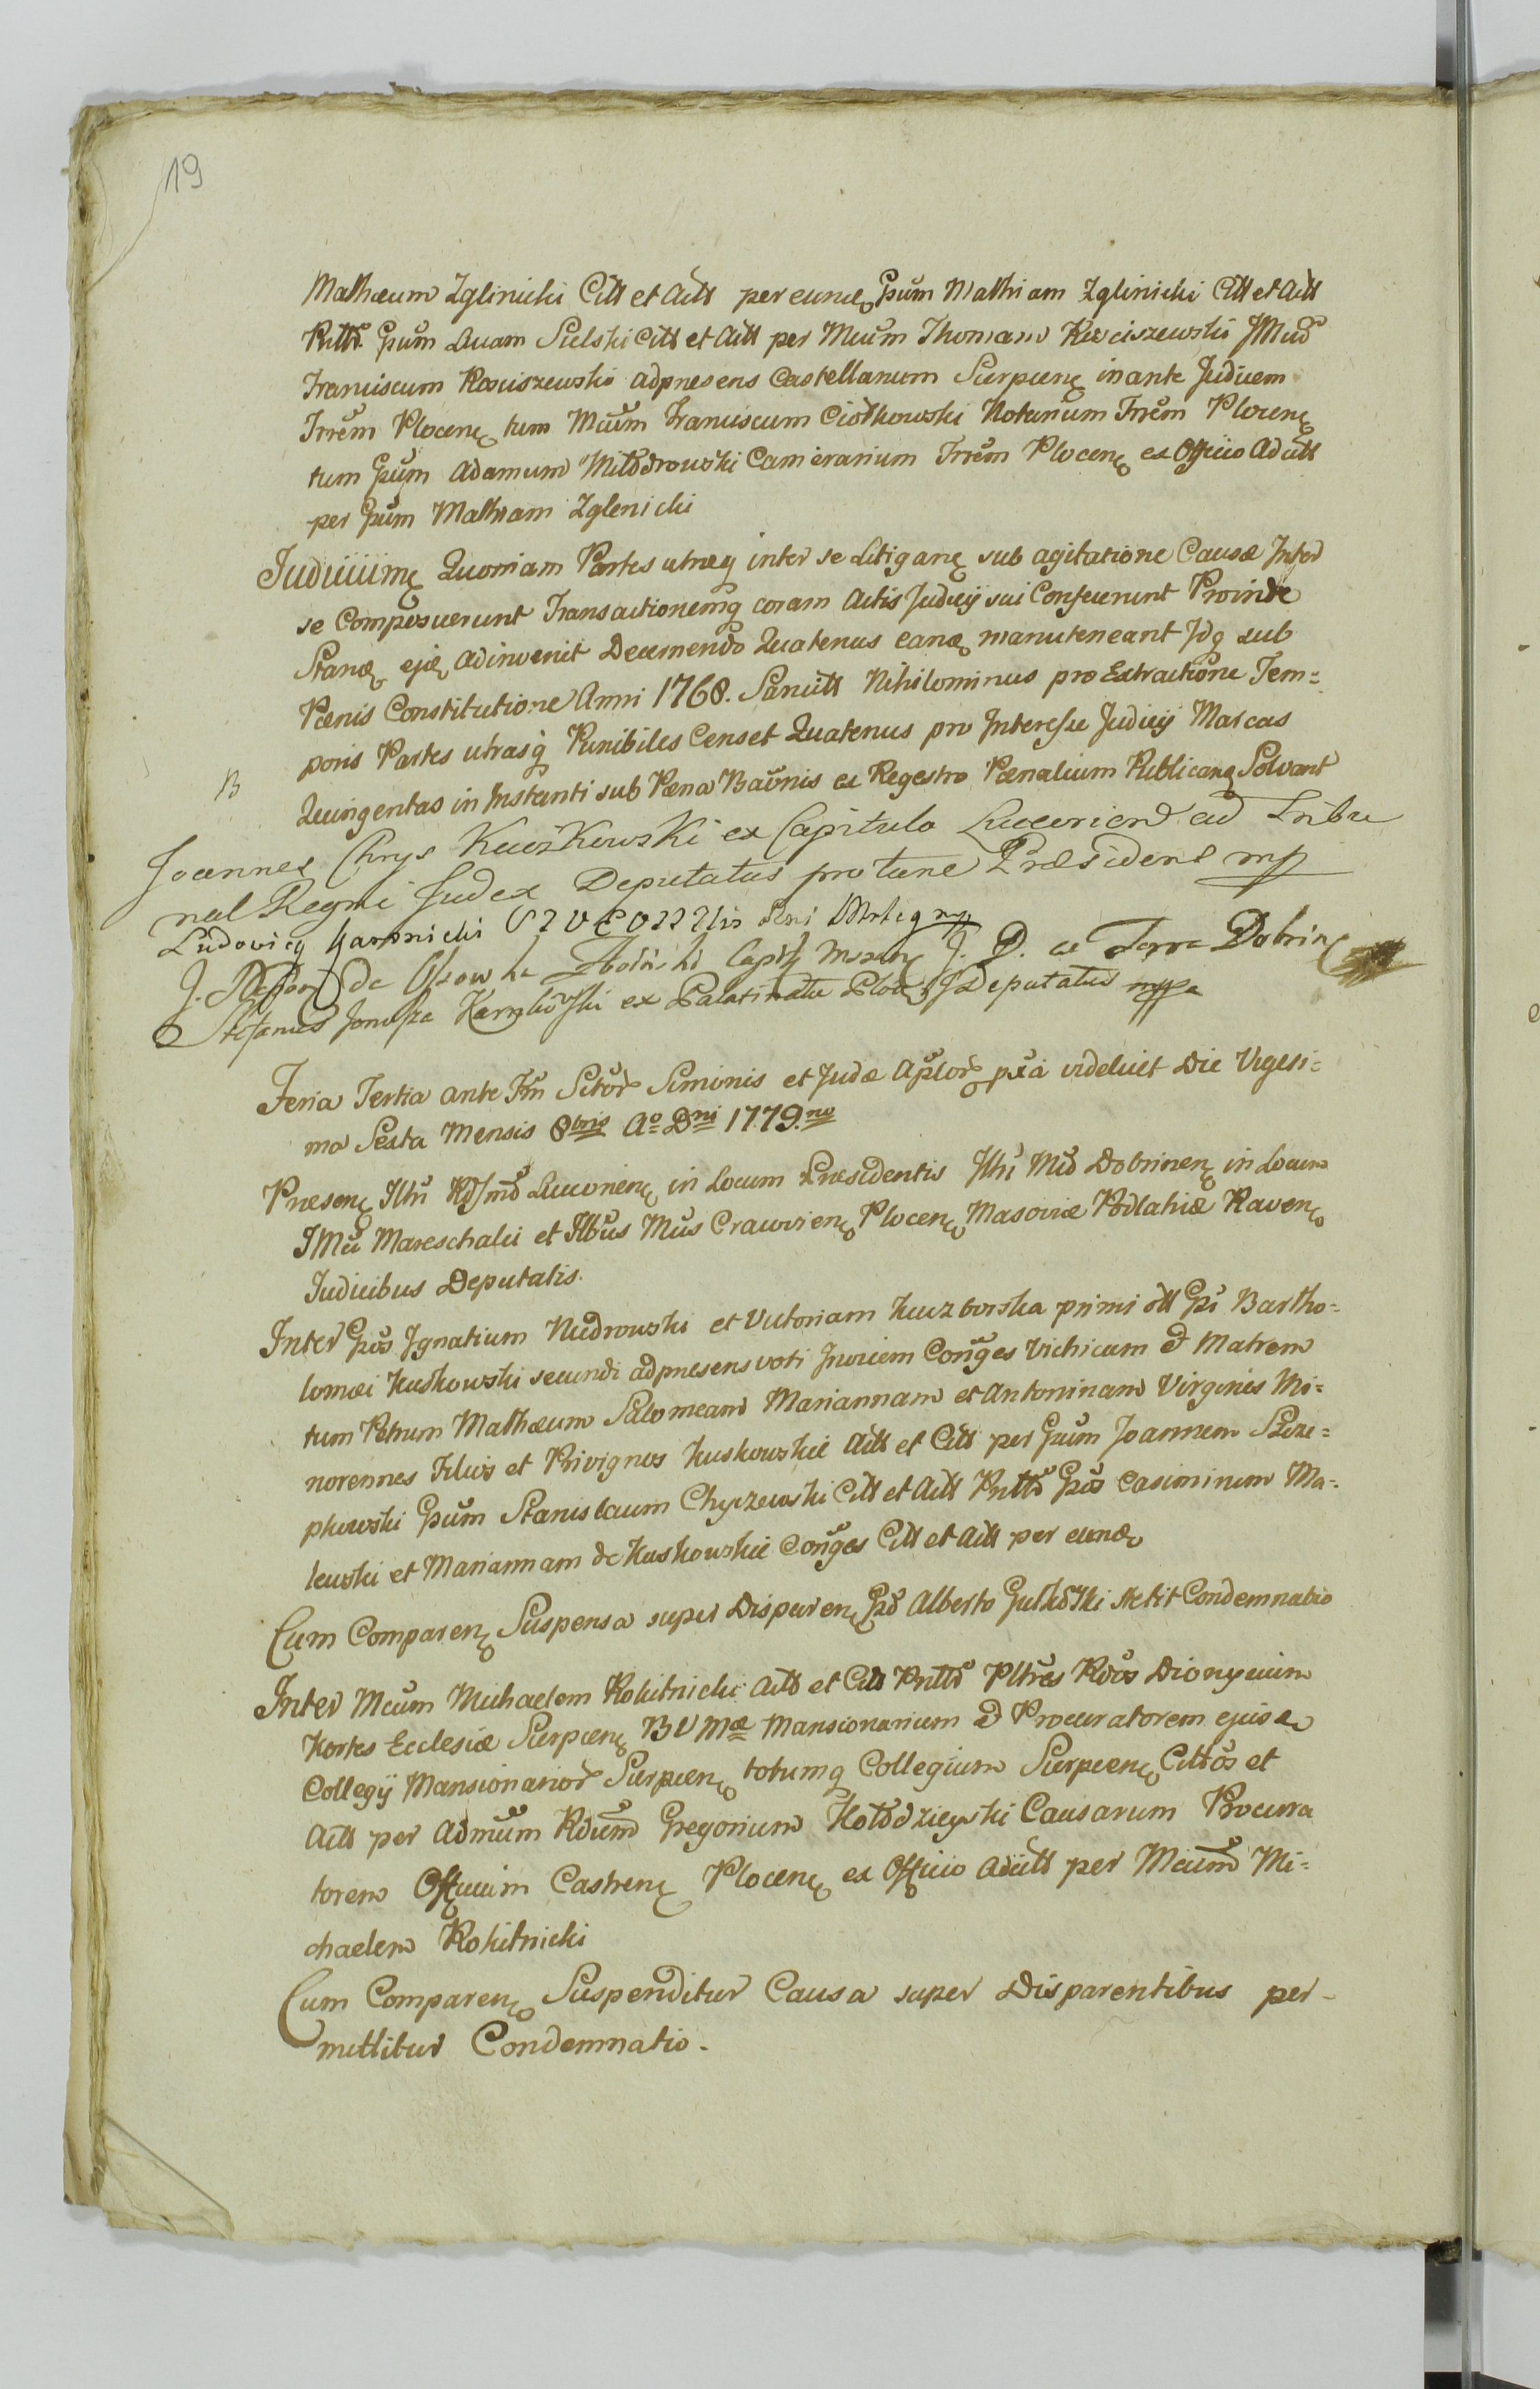 19
Mathæum Zglinicki Citt et Actt per eund Gsum Mathiam Zglinicki Citt et Actt
Putts Gsum Lucam Sielski Citt et Actt per Mcum Thomam Kisciszewski JMcuD
Franciscum Kosciszewski adpræsens Castellanum Sierpcen inante Judicem
Trrem Plocen tum Mcum Franciscum Ciołkowski Notarium Trrem Plocen
tum Gsum Adamum Miłodrowski Camerarium Trrem Plocen ex Officio Adcitt
per Gsum Mathiam Zglenicki
Judicium Quoniam Partes utræq inter se Litigan sub agitatione Causæ Inter
se Composuerunt Transactionemq coram Actis Judicij sui Confecerunt Proinde
Stand eje adinvenit Decernendo Quatenus eand manuteneant Idq sub
Pœnis Constitutione Anni 1768. Sancitt Nihilominus pro Extractione Tem=
poris Partes utrasq Punibiles Censet Quatenus pro Interesse Judicij Marcas
B
Quingentas in Instanti sub Pœna Baonis ex Regestro Pœnalium Publicand Solvant
Joannes Chrys Kaczkowski ex Capitulo Luceorien ad Tribu
nal Regni Judex Deputatus pro tunc Præsidens mp
Ludovicq Karsnicki
J. de J. D. ex Terra Dobrin
Stefanus Janusza Karnkowski ex Palatinatu Ploc JDeputatus mppa
Feria Tertia ante Fm Sctor Simonis et Judæ Aplor pxa videlicet Die Vigesi=
ma Sexta Mensis 8bris Ao Dni 1779.no
Præsen Illri RdJmo Luceorien in Locum Præsidentis Illri Mco Dobrinen in Locum
JMci Mareschalci et Illbus Mcis Cracovien Plocen Masoviæ Podlahiæ Raven
Judicibus Deputatis.
Inter Gsos Ignatium Niedrowski et Victoriam Kuczborska primi ott Gsi Bartho=
lomæi Kuskowski secundi adpræsens voti Invicem Conges Vichicum & Matrem
tum Petrum Mathæum Salomeam Mariannam et Antoninam Virgines Mi=
norennes Filios et Privignos Kuskowskie Actt et Citt per Gsum Joannem Szcze=
pkowski Gsum Stanislaum Chyczewski Citt et Actt Putts Gsos Casimirum Ma=
lewski et Mariannam de Kuskowskie Conges Citt et Actt per eund
Cum Comparen Suspensa super Disparen Gso Alberto Gulkowski stetit Condemnatio
Inter Mcum Michaelem Rokitnicki Actt et Citt Putts Pltres Rdos Dionysium
Kortes Ecclesiæ Sierpcen BVMæ Mansionarium & Procuratorem ejusd
Collegij Mansionarior Sierpcen totumq Collegium Sierpcen Cittos et
Actt per Admum Rdum Gregorium Kołodzieyski Causarum Procura
torem Officium Castren Plocen ex Officio Adcitt per Mcum Mi=
chaelem Rokitnicki
Cum Comparen Suspenditur Causa super Disparentibus per-
mittitur Condemnatio.